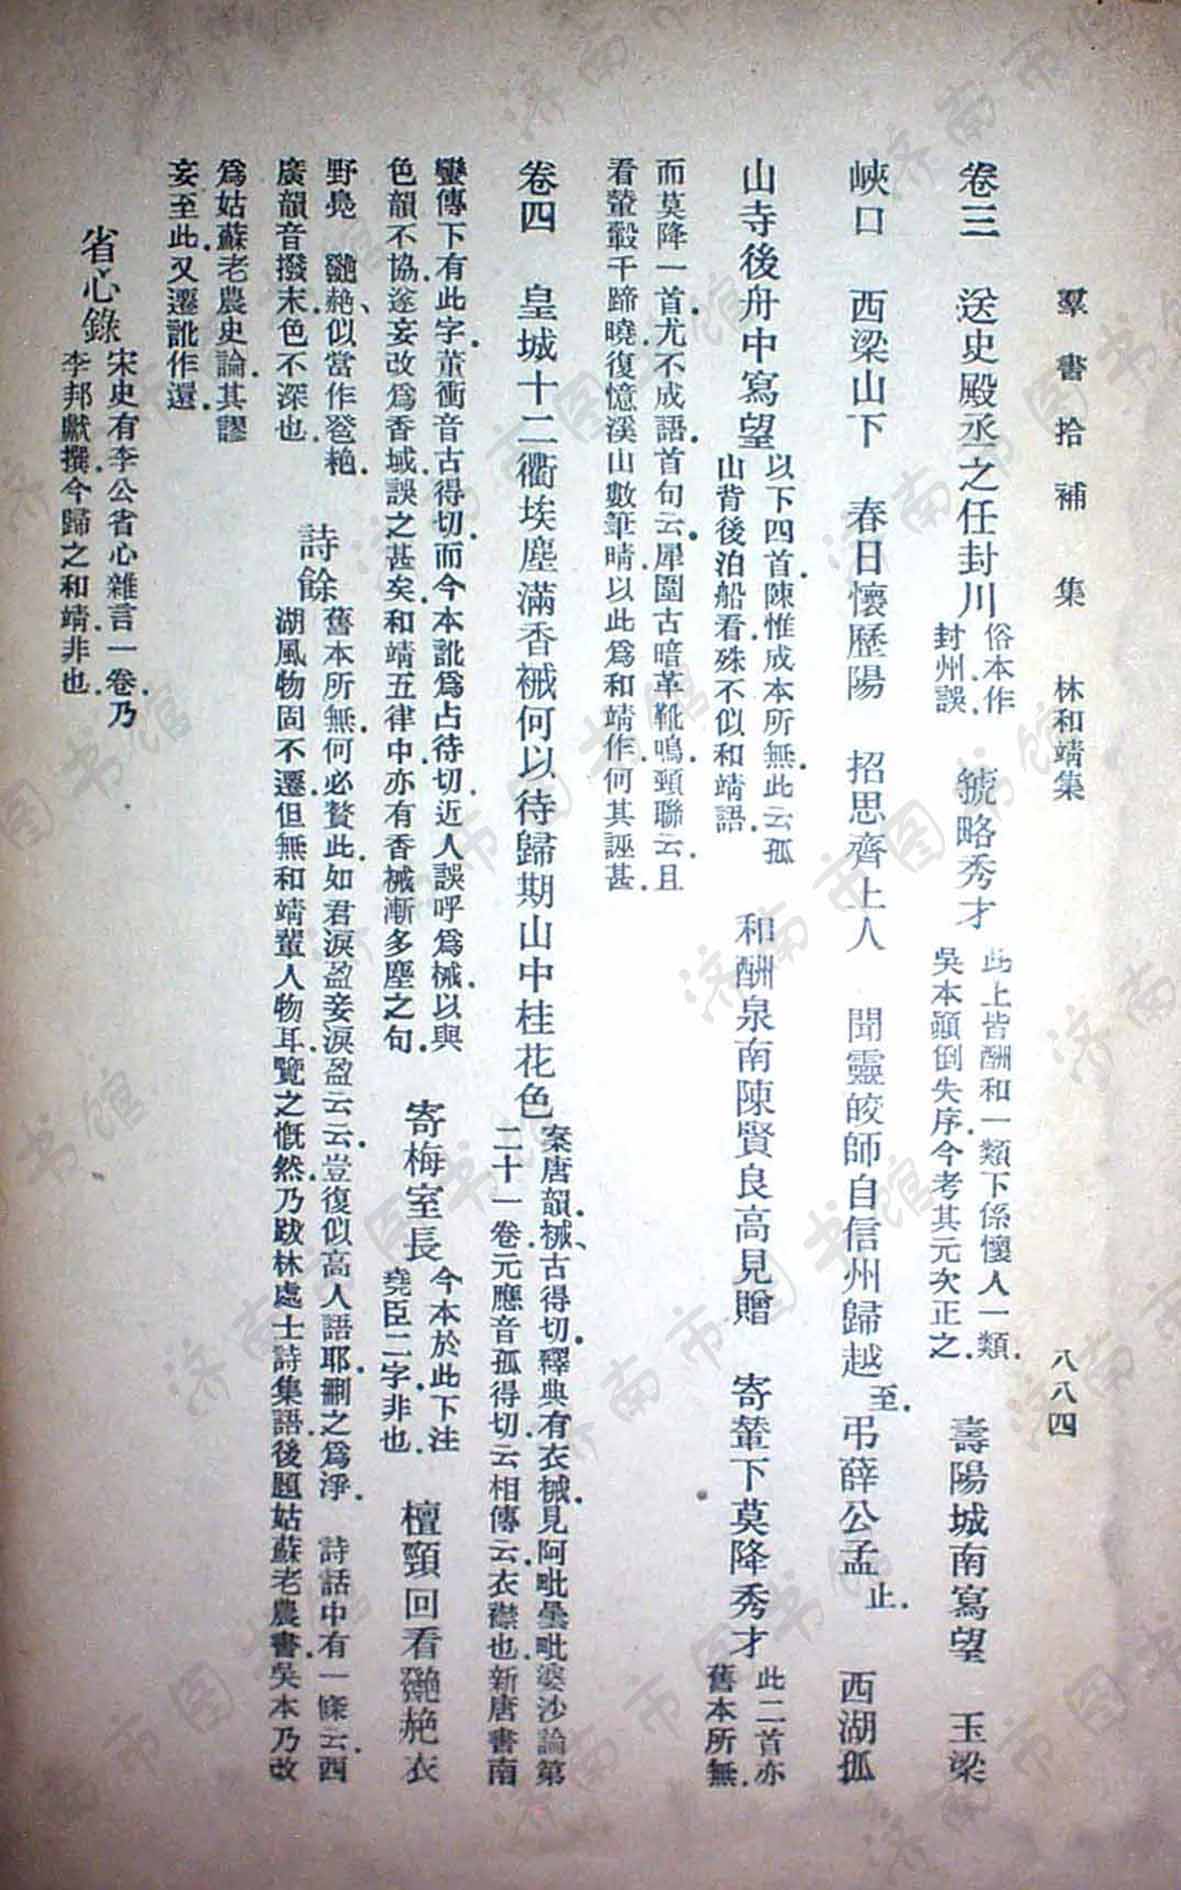 羣書拾補集 林和靖集 八八四
卷三 送史殿丞之任封川 俗本作
封州誤 虢略秀才 此上皆酬和一類下係懷人一類
吳本顛倒失序今考其元次正之 壽陽城南寫望 玉梁
峽口 西梁山下 春日懷歷陽 招思齊上人 聞靈皎師自信州歸越 至 弔薛公孟 止 西湖孤
山寺後舟中寫望 以下四首陳惟成本所無此云孤
山背後泊船看殊不似和靖語 和酬泉南陳賢良高見贈 寄輦下莫降秀才 此二首亦
舊本所無
而莫降一首尤不成語首句云犀圍古暗革靴鳴頸聯云且
看輦轂千蹄曉復憶溪山數筆晴以此爲和靖作何其誣甚
卷四 皇城十二衢埃塵滿香裓何以待歸期山中桂花色 案唐韻裓古得切釋典有衣裓見阿毗曇毗婆沙論第
二十一卷元應音孤得切云相傳云衣襟也新唐書南
蠻傳下有此字董衝音古得切而今本訛爲占待切近人誤呼爲械以與
色韻不協遂妄改爲香域誤之甚矣和靖五律中亦有香裓漸多塵之句 寄梅室長 今本於此下注
堯臣二字非也 檀頸回看
野鳧 似當作
廣韻音撥末色不深也 詩餘 舊本所無何必贅此如君淚盈妾淚盈云云豈復似高人語耶刪之爲淨 詩話中有一條云西
湖風物固不遷但無和靖輩人物耳覽之慨然乃跋林處士詩集語後題姑蘇老農書吳本乃改
爲姑蘇老農史論其謬
妄至此又遷訛作還
省心錄 宋史有李公省心雜言一卷乃
李邦獻撰今歸之和靖非也